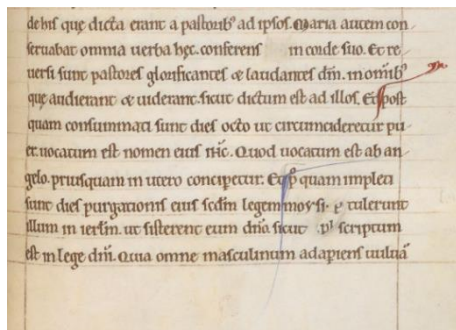 de his que dicta erant a pastorib' ad ipsos. Maria autem con-
seruabat omnia uerba hęc. conferens in corde suo. Et re-
uersi sunt pastores glorificantes & laudantes dm̄. in omib'
que audierant & uiderant. sicut dictum est ad illos. Et post
quam consummati sunt dies octo ut circumcideretur pu-
er. uocatum est nomen eius ih̄c. Quod uocatum est ab an-
gelo. priusquam in utero conciperetur. Et p' quam impleti
sunt dies purgationis eius scdm̄ legem moysi. tulerunt
illum in ierl̄m. ut sisterent eum dn̄o sicut scriptum
est in lege dn̄i. Quia omne masculinum adapiens uuluā